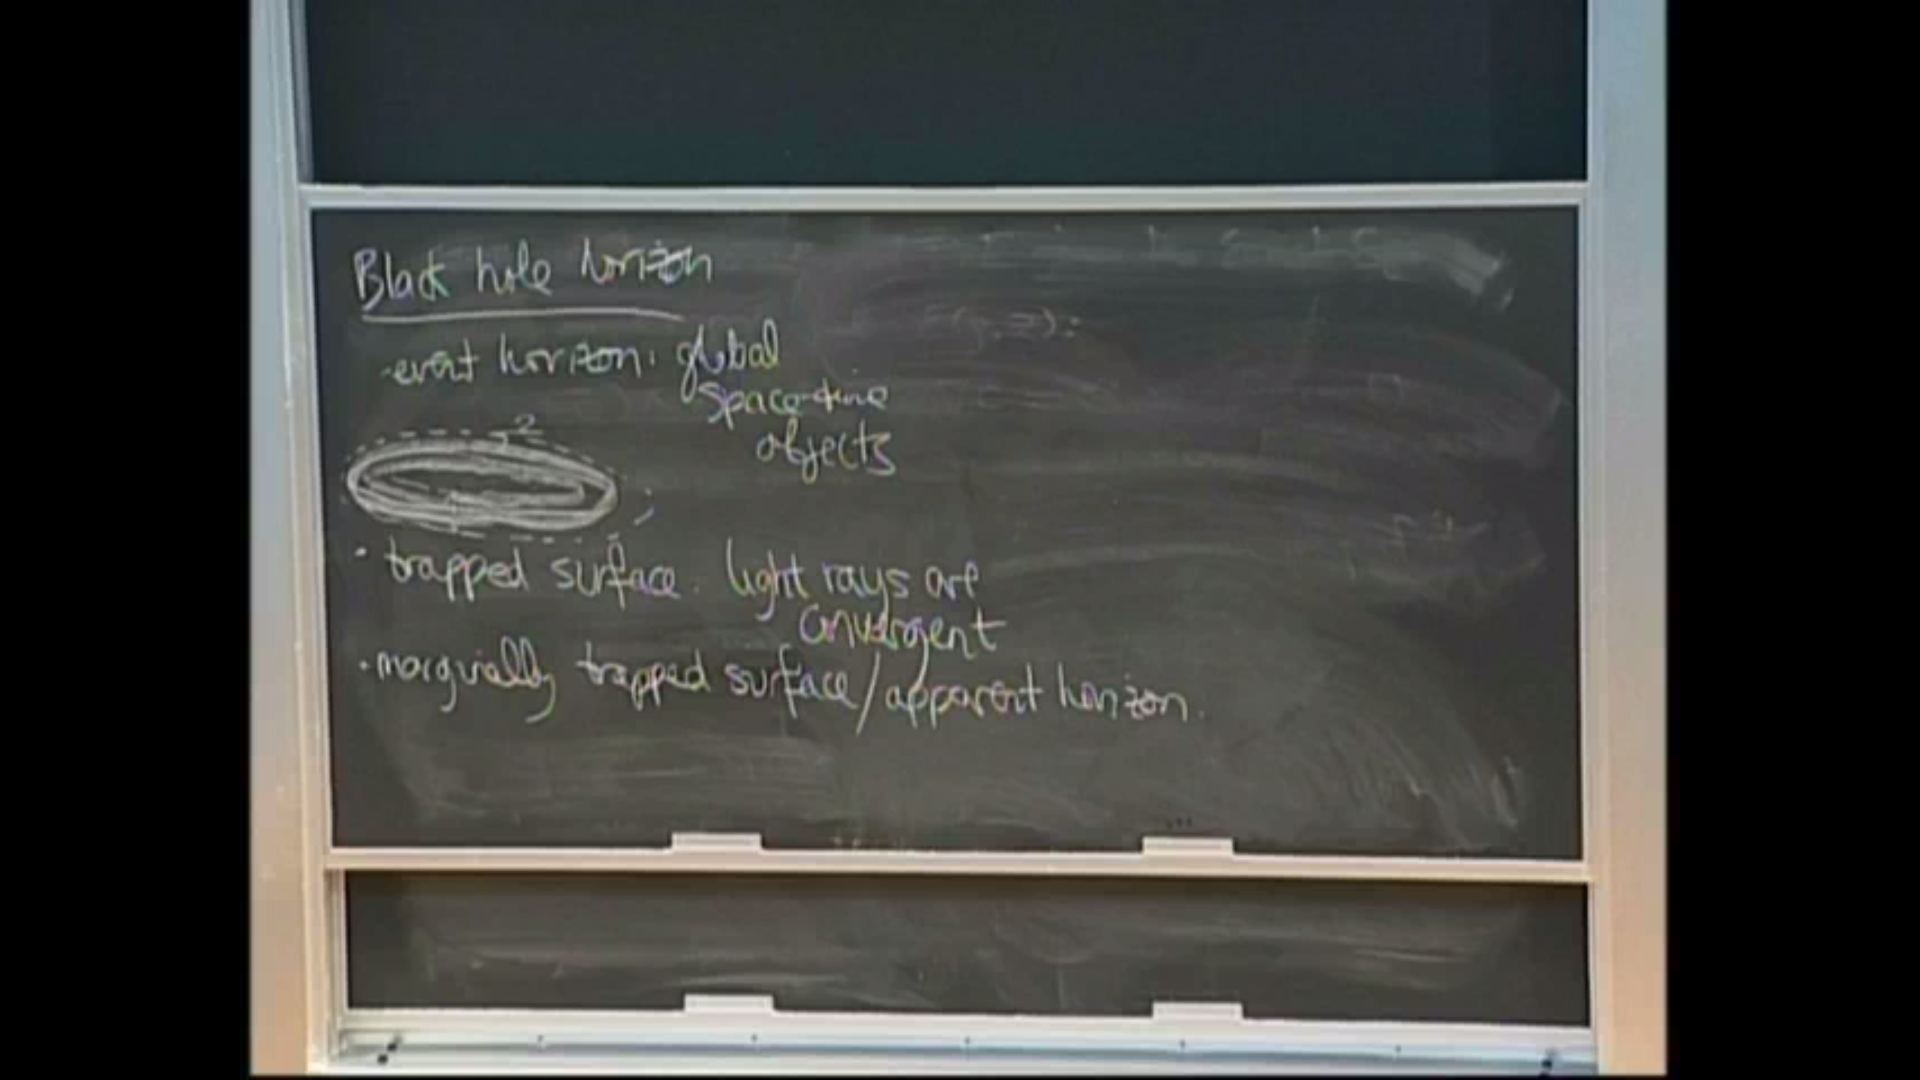 Black hole horizon
- event horizon. global
space-time
objects
• trapped surface. light rays are
convergent
• marginally trapped surface/apparent horizon.